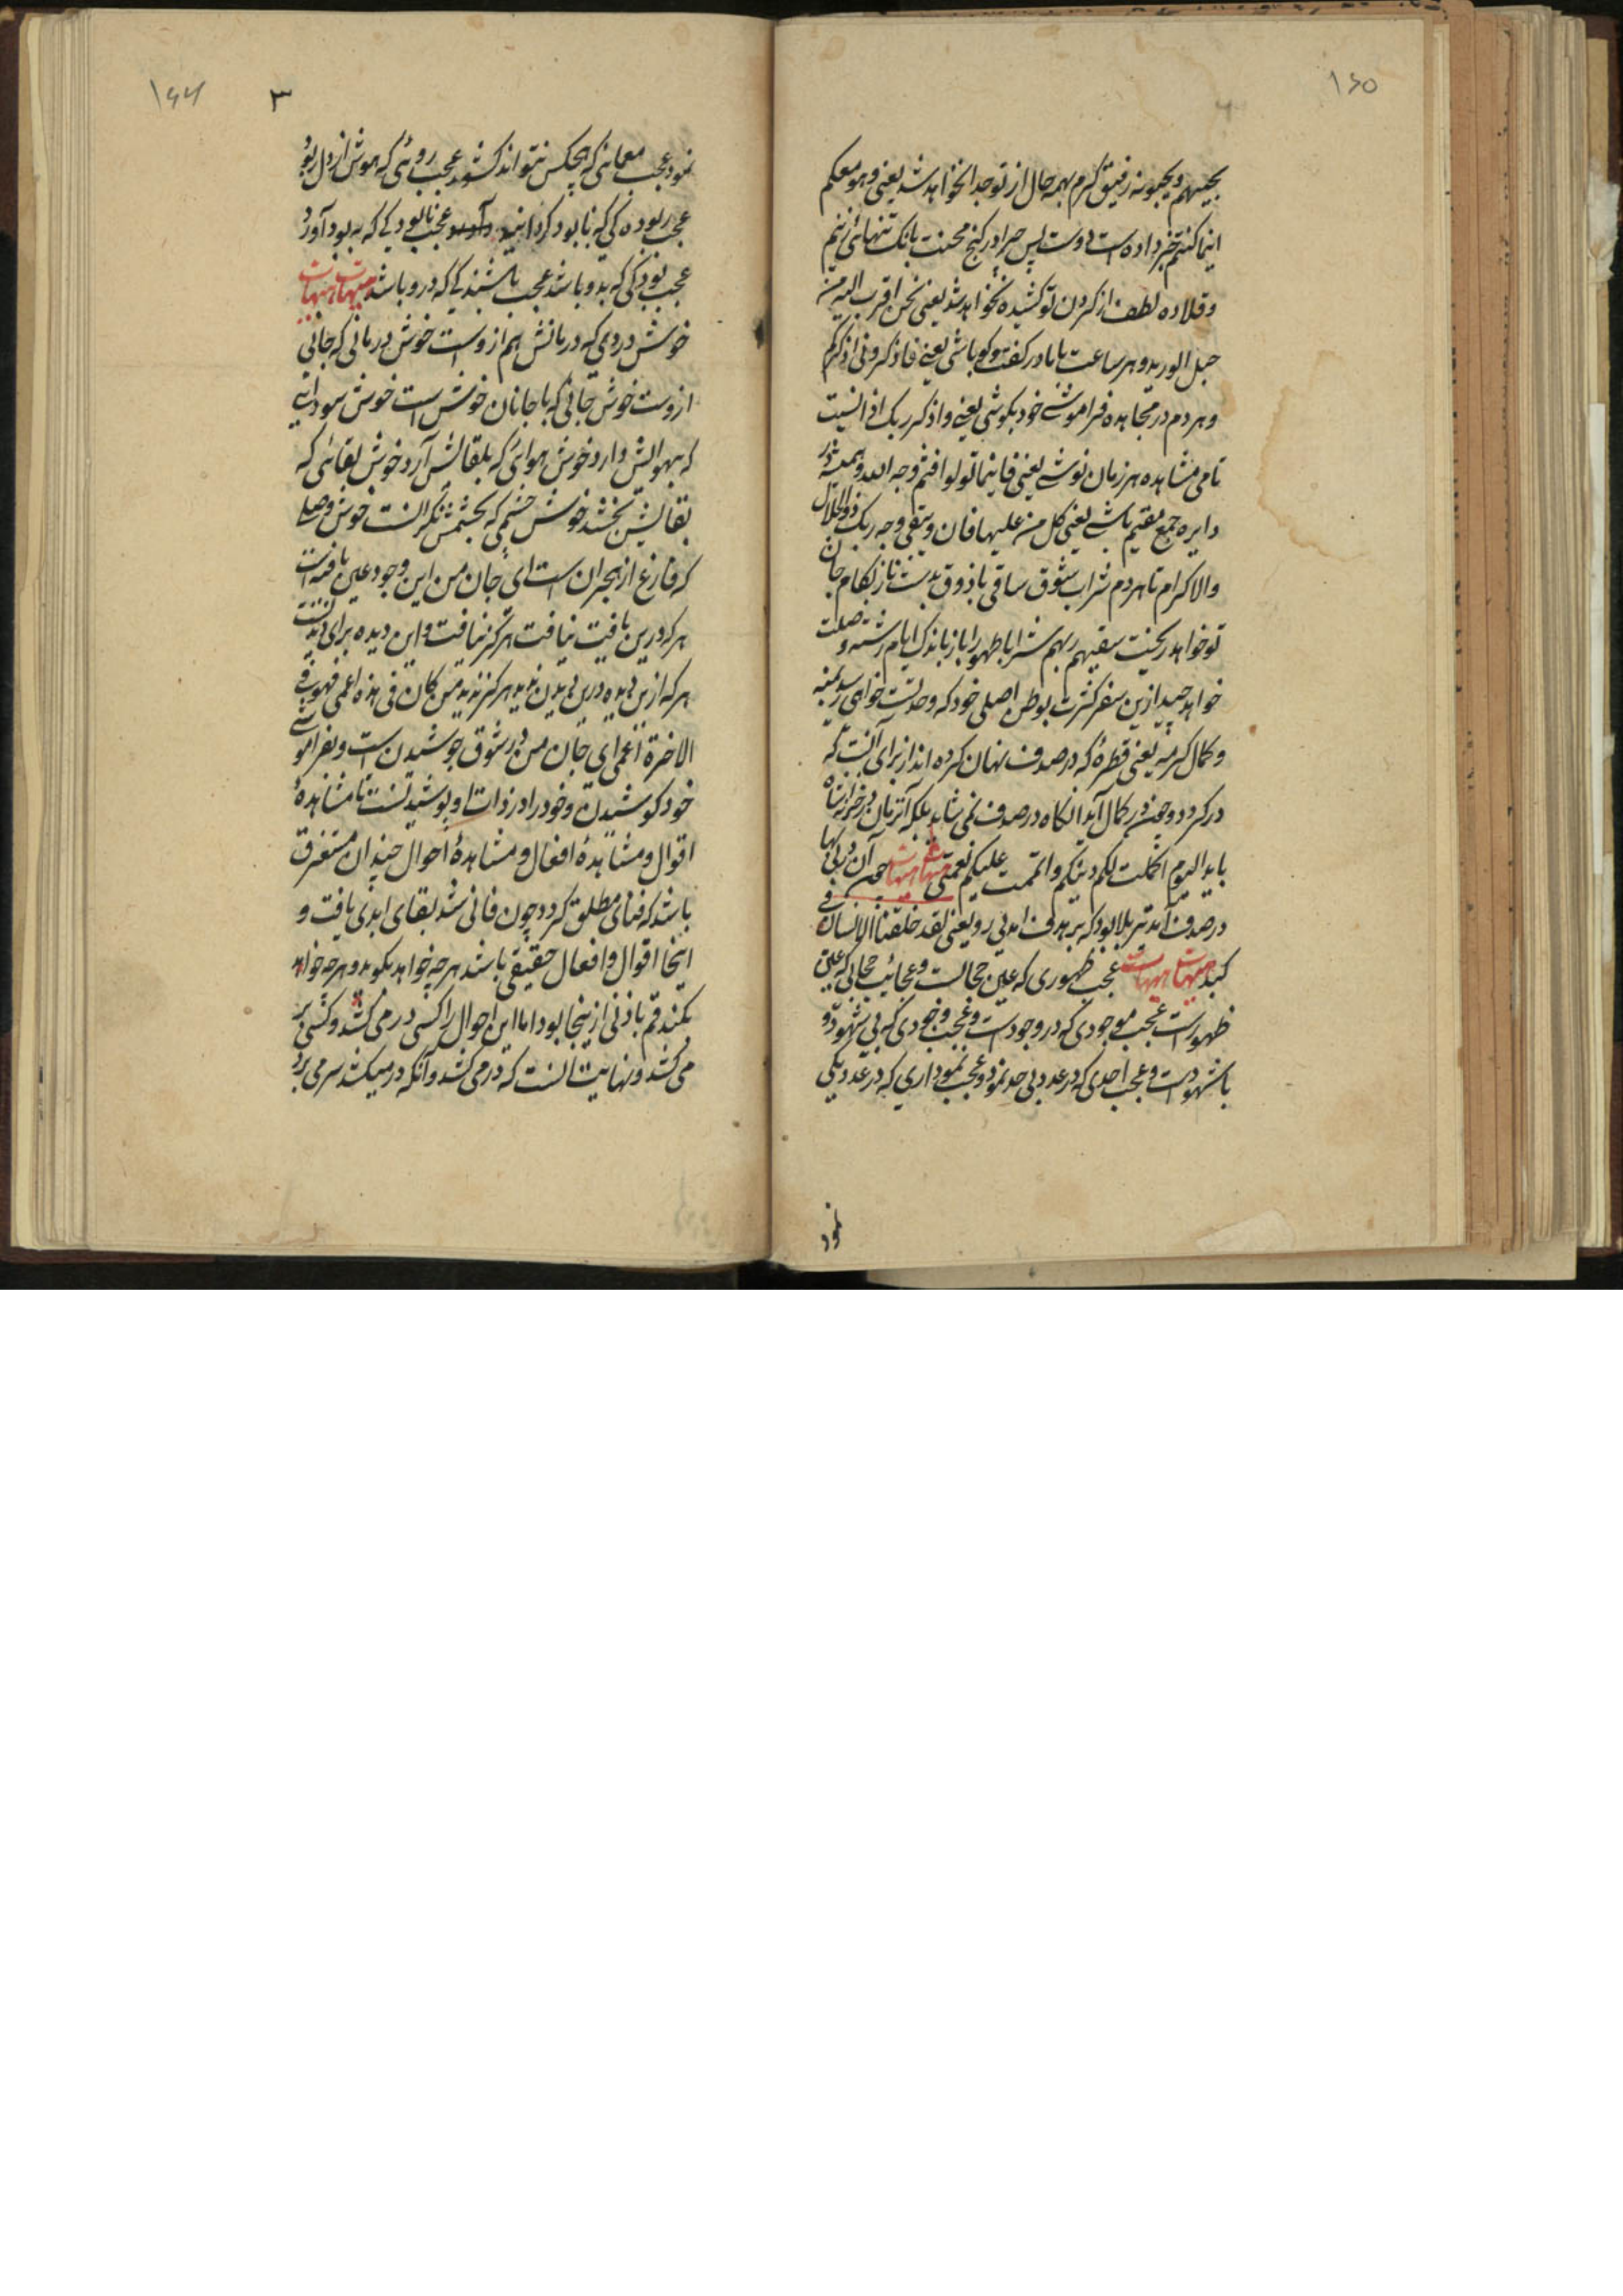 ۱۶۵
یحبیهم ویحبونه رفیق کرم بهمه حال از تو جدا نخواهد شد یعنی وهو معکم
اینما کنتم خبر داده است دوست پس چرا در کنج محنت بانک تنهائی زنیم
وقلاده لطف از کردن تو کشیده نخواهد شد یعنی نحن اقرب الیه من
حبل الورید وهر ساعت باما در کفت وکو باشی یعنی فاذکرونی اذکرکم
وهردم در مجاهده فراموشی خود بکوشی یعنی واذکر ربک اذا نسیت
تا می مشاهده هر زمان نوشی یعنی فاینما تولوا فثم وجه الله وهمیشه در
دایره جمع مقیم باشی یعنی کل من علیها فان ویبقی وجه ربک ذوالجلال
والاکرام تا هردم شراب شوق ساقی باذوق بدست ناز بکام جان
تو خواهد ریخت سقیهم ربهم شرابا طهورا باز باندک ایام رشته وصلت
خواهد چید ازین سفر کثرت بوطن اصلی خود که وحدتست خواهی رسید بمنه
وکمال کرمه یعنی قطرهٔ که در صدف نهان کرده اند از برای آنست که
در کردد وچون در کمال آید آنکاه در صدف نمی شاید بلکه آن زمان در خزانه شاه
باید الیوم اکملت لکم دینکم واتممت علیکم نعمتی هیهات هیهات چون آن در بی بها
در صدف آمد تیر بلا بود که بر هدف آمد بی رو یعنی لقد خلقنا الانسان فی
کبد هیهات هیهات عجب ظهوری که عین حجابست وعجائب حجابی که عین
ظهورست عجب موجودی که در وجودست وعجب وجودی که بی شهود و
با شهودست وعجب احدی که در عدد بی حد نمود وعجب نموداری که در عدد یکی
نمود
۱۶۶ ۳
نمود عجب معمائی که هیچکس نتواند کشود عجب روئی که هوش از دل ربود
عجب ربوده کی که نابود کردانید عجب نابودی که به بود آورد
عجب بودکی که بدو باشد عجب باشندکی که درو باشد هیهات هیهات
خوش دردی که درمانش هم ازوست خوش درمانی که جانی
ازوست خوش جانی که با جانان خوش است خوش سودائی
که بهوایش دارد خوش هوائی که بلقائش آرد خوش لقائی که
بقایش بخشد خوش چشمی که بچشمش نکرانست خوش وصلی
که فارغ از هجران است ای جان من این وجود عین یافت است
هرکه درین یافت نیافت هرکز نیافت واین دیده برای دیدنست
هرکه ازین دیده درین دیدن ندید هرکز ندید من کان فی هذه اعمی فهو فی
الاخرة اعمی ای جان من در شوق جوشیدن است وبفراموشی
خود کوشیدن وخود را در ذات او پوشیدنست تا مشاهدهٔ
اقوال ومشاهدهٔ افعال ومشاهدهٔ احوال چندان مستغرق
باشد که فنای مطلق کردد چون فانی شد بقای ابدی یافت و
اینجا اقوال وافعال حقیقی باشد هرچه خواهد بکوید وهرچه خواهد
بکند قم باذنی ازینجا بود اما این احوال را کسی در می کشد وکسی بر
می کشد ونهایت آنست که در می کشد وآنکه در میکشد سر می برد